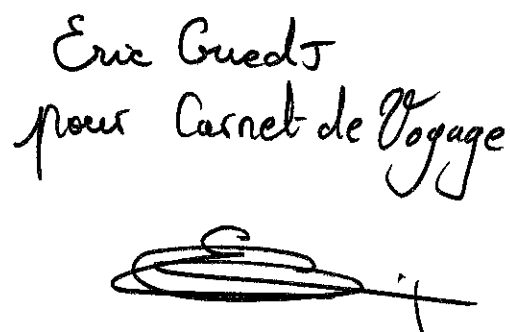 Eric Guedj
pour Carnet de Voyage